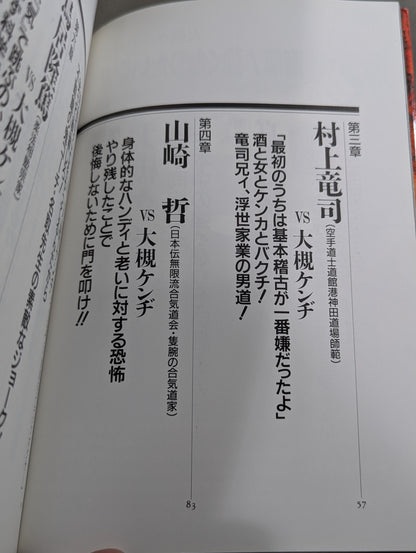 第三章
村上竜司(空手道士道館港神田道場師範)
VS 大槻ケンヂ
「最初のうちは基本稽古が一番嫌だったよ」
酒と女とケンカとバクチ!
竜司兄ィ、浮世家業の男道!
57
第四章
山崎 哲(日本伝無限流合気道会・隻腕の合気道家)
VS 大槻ケンヂ
身体的なハンディと老いに対する恐怖
やり残したことで
後悔しないために門を叩け!!
83
VS 大槻ケン